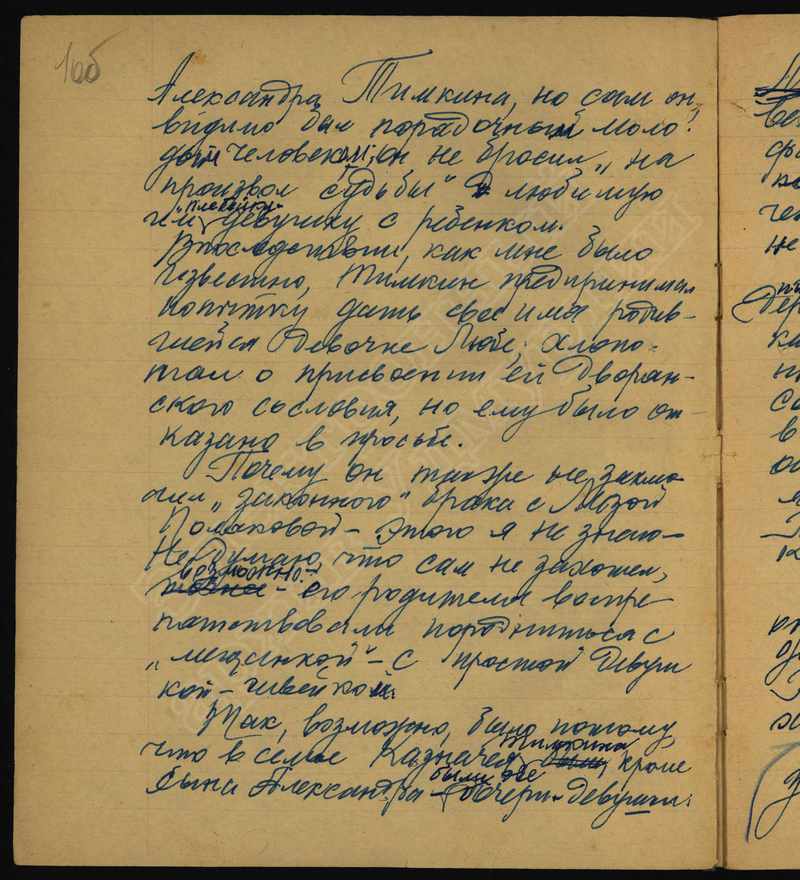 16б
Александра Тимкина, но сам он,
видимо был порядочным моло-
дым человеком; он не бросил „на
произвол судьбы" любимую
им „плебейку" девушку с ребенком.
Впоследствии, как мне было
известно, Тимкин предпринимал
попытку дать свое имя родив-
шейся девочке Любе; хлопо-
тал о присвоении ей дворян-
ского сословия, но ему было от-
казано в просьбе.
Почему он также не заклю-
чил „законного" брака с Лизой
Поляковой – этого я не знаю –
Не думаю, что сам не захотел,
возможно – его родители воспре
пятствовали породниться с
„мещанкой" – с простой девуш
кой – швейкой.
Так, возможно, было потому,
что в семье казначея Тимкина, кроме
сына Александра были две дочери-девушки: